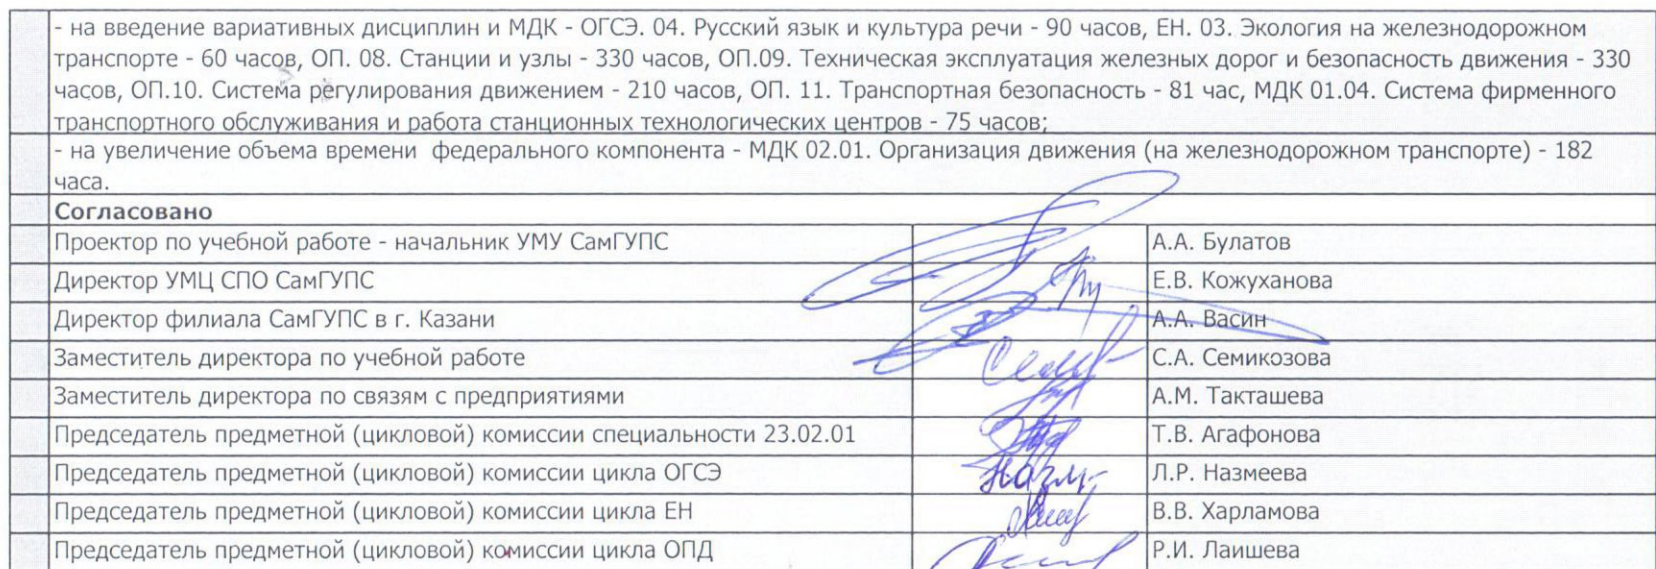 - на введение вариативных дисциплин и МДК - ОГСЭ. 04. Русский язык и культура речи - 90 часов, ЕН. 03. Экология на железнодорожном
транспорте - 60 часов, ОП. 08. Станции и узлы - 330 часов, ОП.09. Техническая эксплуатация железных дорог и безопасность движения - 330
часов, ОП.10. Система регулирования движением - 210 часов, ОП. 11. Транспортная безопасность - 81 час, МДК 01.04. Система фирменного
транспортного обслуживания и работа станционных технологических центров - 75 часов;
- на увеличение объема времени федерального компонента - МДК 02.01. Организация движения (на железнодорожном транспорте) - 182
часа.
Согласовано
Проектор по учебной работе - начальник УМУ СамГУПС А.А. Булатов
Директор УМЦ СПО СамГУПС Е.В. Кожуханова
Директор филиала СамГУПС в г. Казани А.А. Васин
Заместитель директора по учебной работе С.А. Семикозова
Заместитель директора по связям с предприятиями А.М. Такташева
Председатель предметной (цикловой) комиссии специальности 23.02.01 Т.В. Агафонова
Председатель предметной (цикловой) комиссии цикла ОГСЭ Л.Р. Назмеева
Председатель предметной (цикловой) комиссии цикла ЕН В.В. Харламова
Председатель предметной (цикловой) комиссии цикла ОПД Р.И. Лаишева